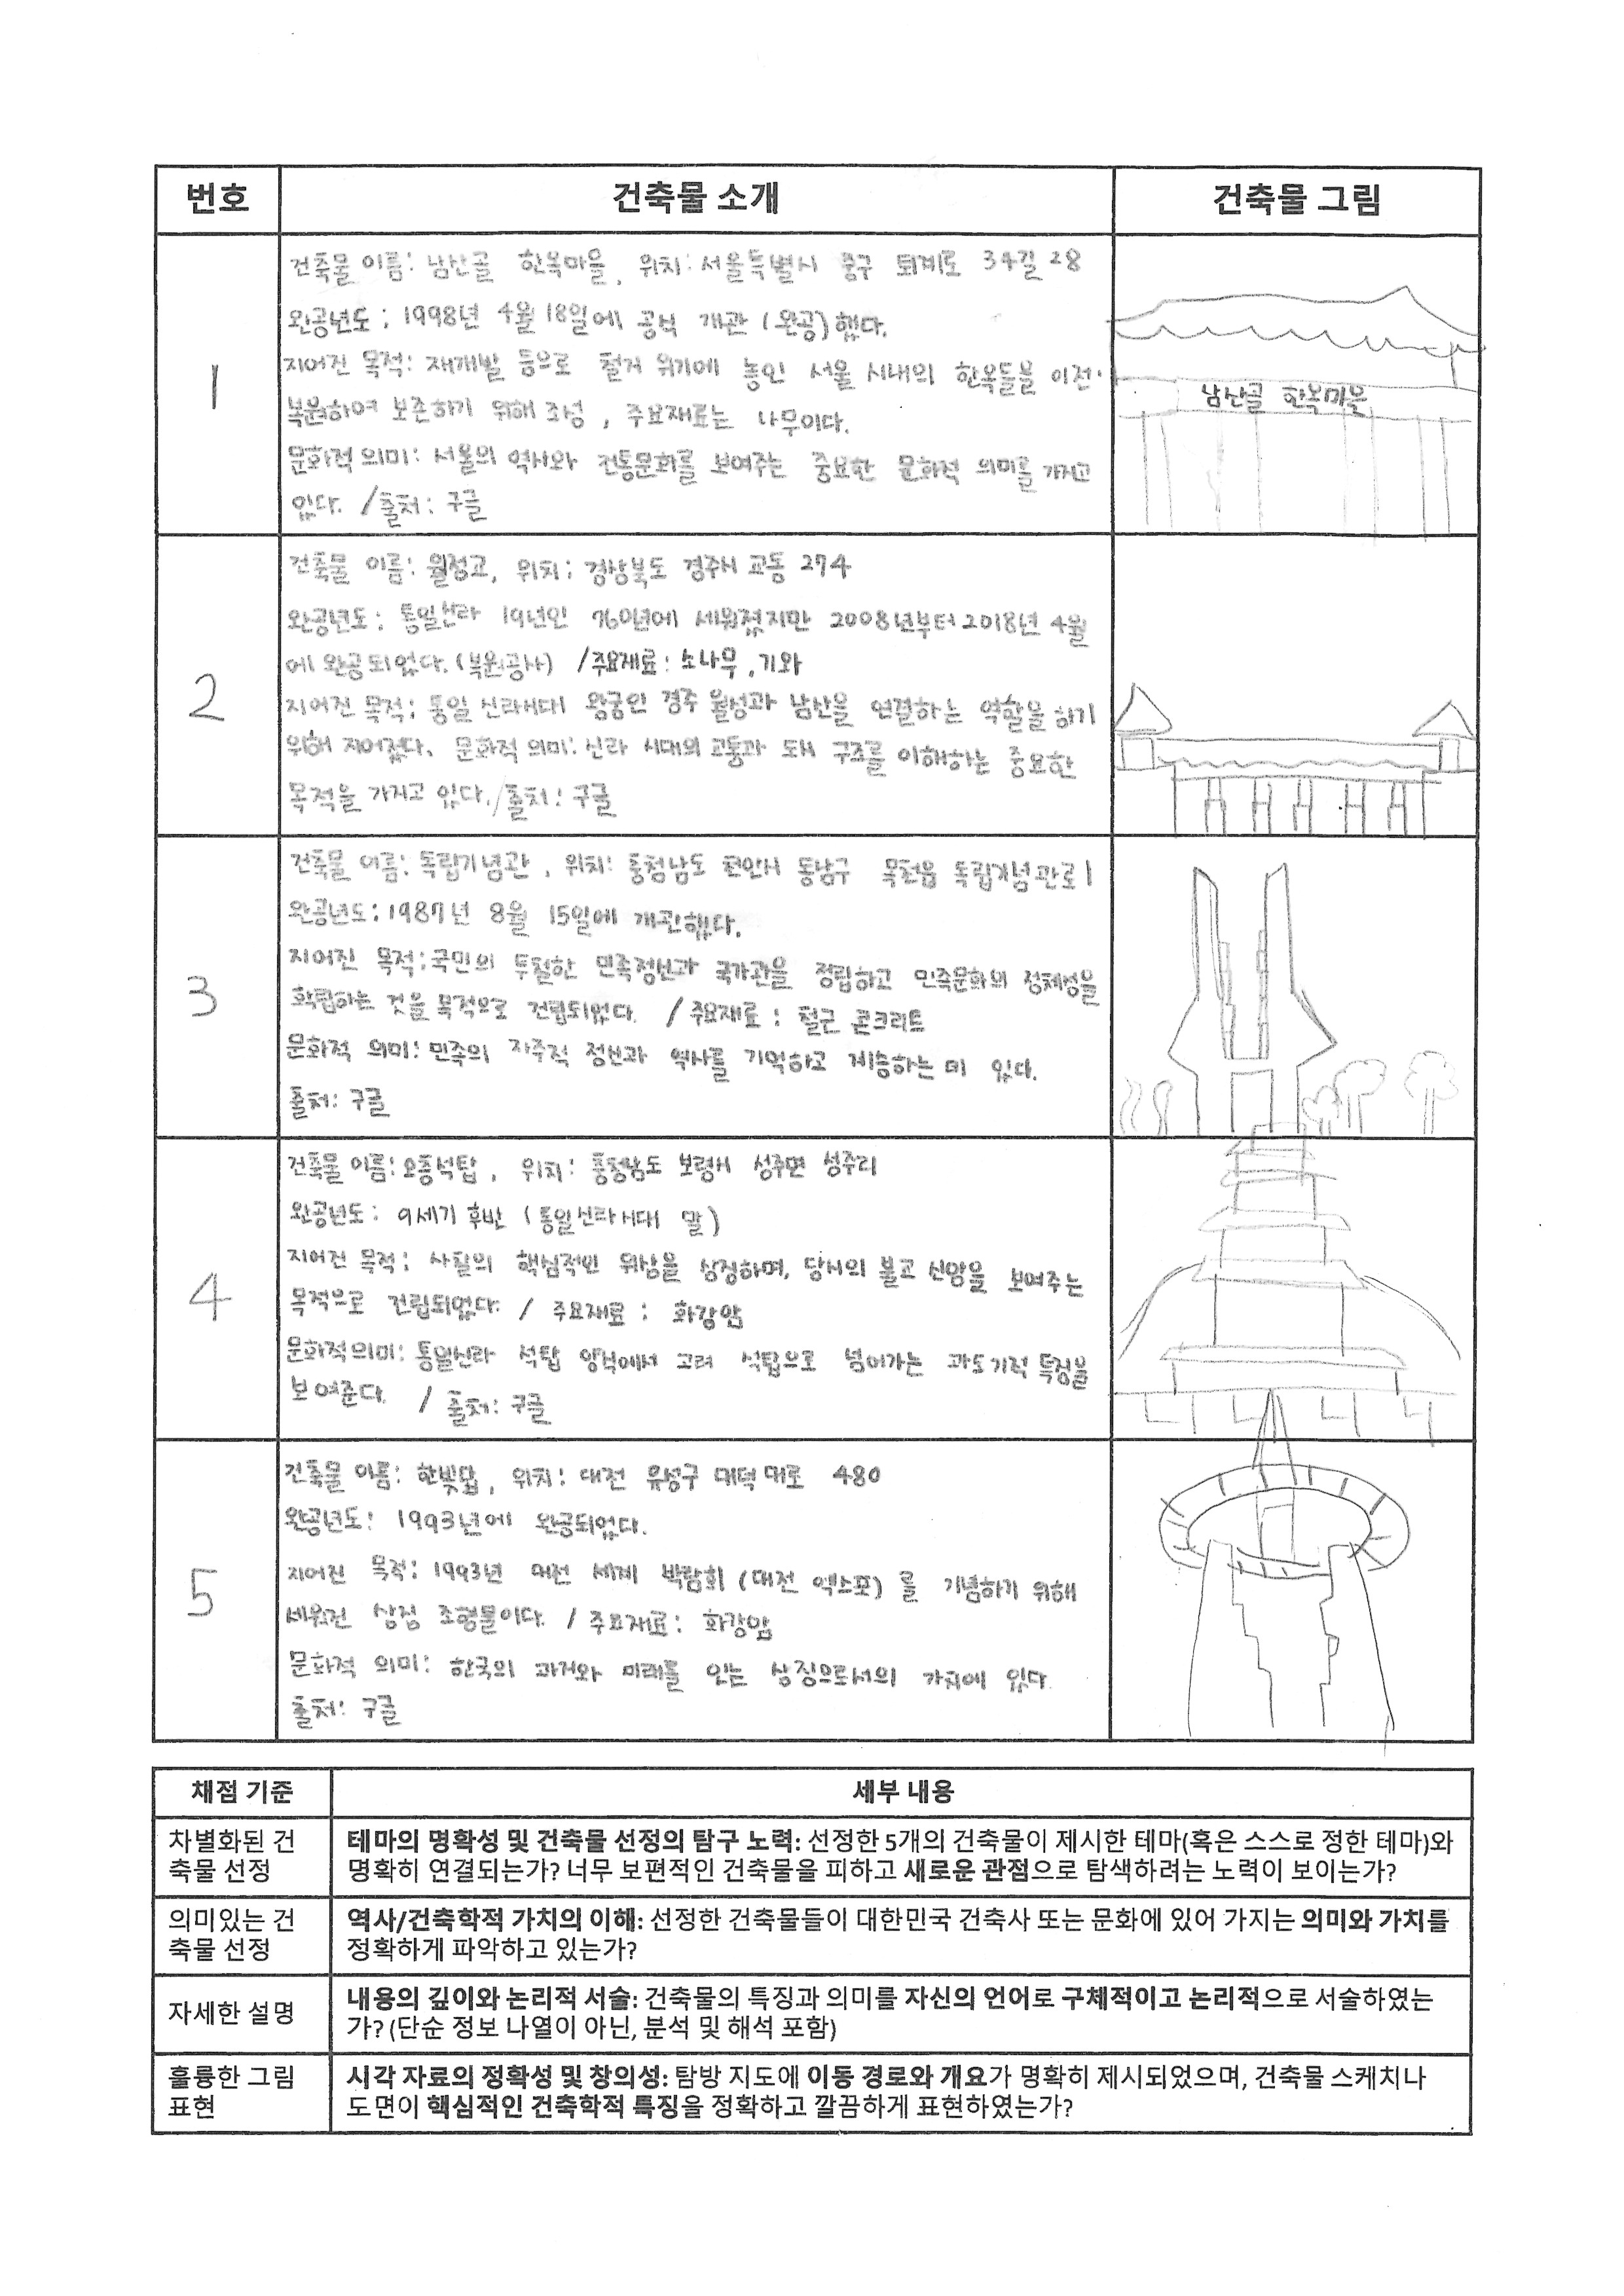 번호 건축물 소개 건축물 그림
1
건축물 이름: 남산골 한옥마을, 위치: 서울특별시 중구 퇴계로 34길 28
완공년도: 1998년 4월 18일에 공식 개관(완공)했다.
지어진 목적: 재개발 등으로 철거 위기에 놓인 서울 시내의 한옥들을 이전·
복원하여 보존하기 위해 조성, 주요재료는 나무이다.
문화적 의미: 서울의 역사와 전통문화를 보여주는 중요한 문화적 의미를 가지고
있다. /출처: 구글
남산골 한옥마을
2
건축물 이름: 월정교, 위치: 경상북도 경주시 교동 274
완공년도: 통일신라 19년인 760년에 세워졌지만 2008년부터 2018년 4월
에 완공되었다.(복원공사) /주요재료: 소나무, 기와
지어진 목적: 통일 신라시대 왕궁인 경주 월성과 남산을 연결하는 역할을 하기
위해 지어졌다. 문화적 의미: 신라 시대의 교통과 도시 구조를 이해하는 중요한
목적을 가지고 있다./출처: 구글
3
건축물 이름: 독립기념관, 위치: 충청남도 천안시 동남구 목천읍 독립기념관로 1
완공년도: 1987년 8월 15일에 개관했다.
지어진 목적: 국민의 투철한 민족정신과 국가관을 정립하고 민족문화의 정체성을
확립하는 것을 목적으로 건립되었다. / 주요재료: 철근 콘크리트
문화적 의미: 민족의 자주적 정신과 역사를 기억하고 계승하는데 있다.
출처: 구글
4
건축물 이름: 오층석탑, 위치: 충청남도 보령시 성주면 성주리
완공년도: 9세기 후반 (통일신라시대 말)
지어진 목적: 사찰의 핵심적인 위상을 상징하며, 당시의 불교 신앙을 보여주는
목적으로 건립되었다. / 주요재료: 화강암
문화적의미: 통일신라 석탑 양식에서 고려 석탑으로 넘어가는 과도기적 특징을
보여준다. / 출처: 구글
5
건축물 이름: 한빛탑, 위치: 대전 유성구 대덕대로 480
완공년도: 1993년에 완공되었다.
지어진 목적: 1993년 대전 세계 박람회(대전 엑스포)를 기념하기 위해
세워진 상징 조형물이다. / 주요재료: 화강암
문화적 의미: 한국의 과거와 미래를 잇는 상징으로서의 가치에 있다.
출처: 구글
채점 기준 세부 내용
차별화된 건
축물 선정
테마의 명확성 및 건축물 선정의 탐구 노력: 선정한 5개의 건축물이 제시한 테마(혹은 스스로 정한 테마)와
명확히 연결되는가? 너무 보편적인 건축물을 피하고 새로운 관점으로 탐색하려는 노력이 보이는가?
의미있는 건
축물 선정
역사/건축학적 가치의 이해: 선정한 건축물들이 대한민국 건축사 또는 문화에 있어 가지는 의미와 가치를
정확하게 파악하고 있는가?
자세한 설명
내용의 깊이와 논리적 서술: 건축물의 특징과 의미를 자신의 언어로 구체적이고 논리적으로 서술하였는
가? (단순 정보 나열이 아닌, 분석 및 해석 포함)
훌륭한 그림
표현
시각 자료의 정확성 및 창의성: 탐방 지도에 이동 경로와 개요가 명확히 제시되었으며, 건축물 스케치나
도면이 핵심적인 건축학적 특징을 정확하고 깔끔하게 표현하였는가?